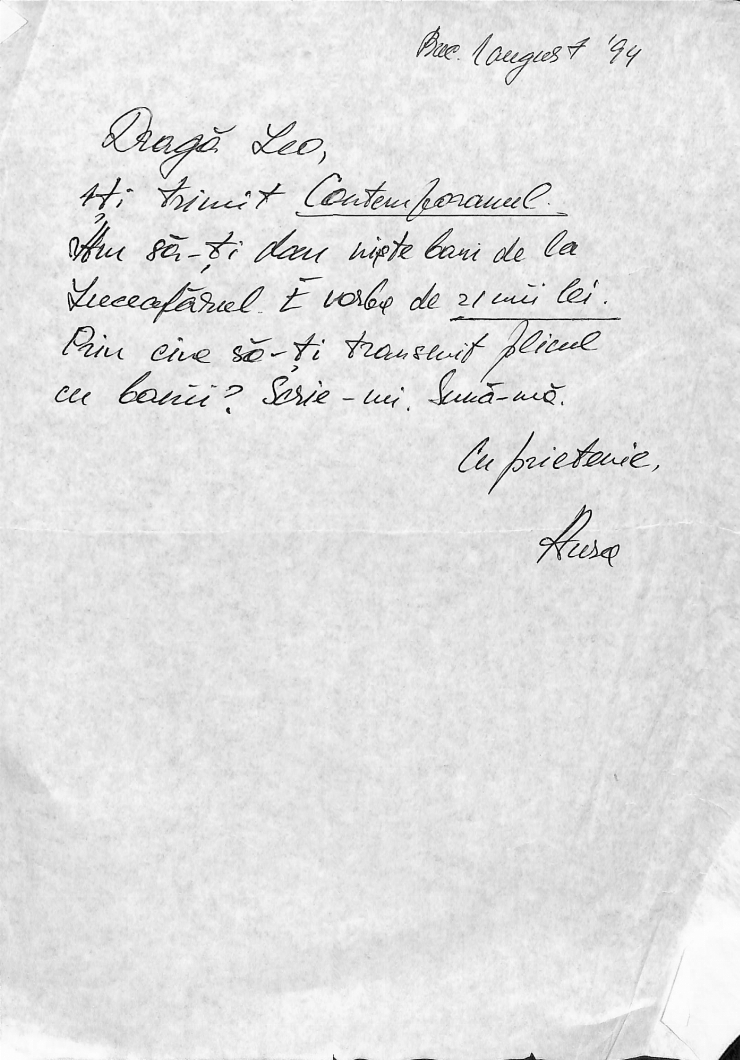 Buc. 1 august '94
Dragă Leo,
Îți trimit Contemporanul.
Am să-ți dau niște bani de la
Luceafărul. E vorba de 21 mii lei.
Prin cine să-ți transmit plicul
cu banii? Scrie-mi. Sună-mă.
Cu prietenie,
Aura